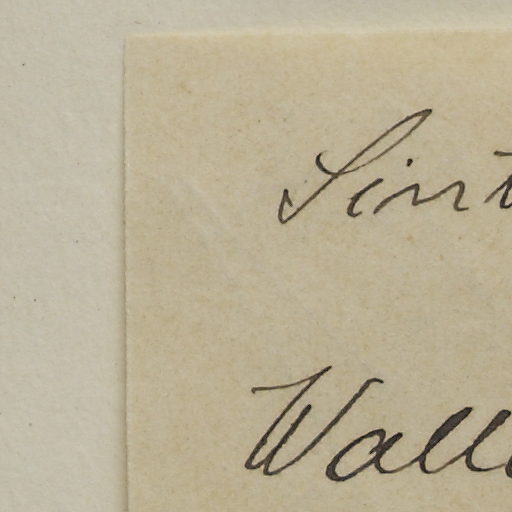 Sint
Walle